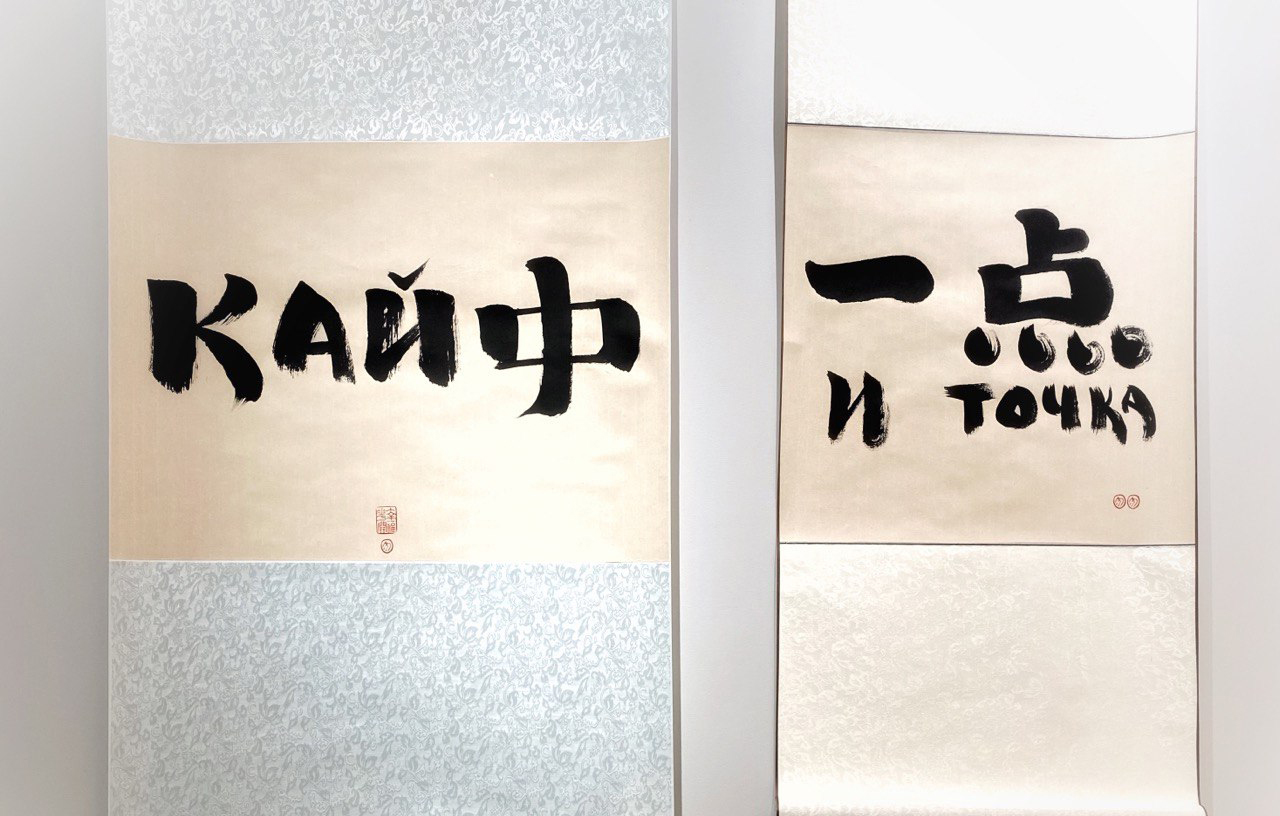 кайф
一点
и точка